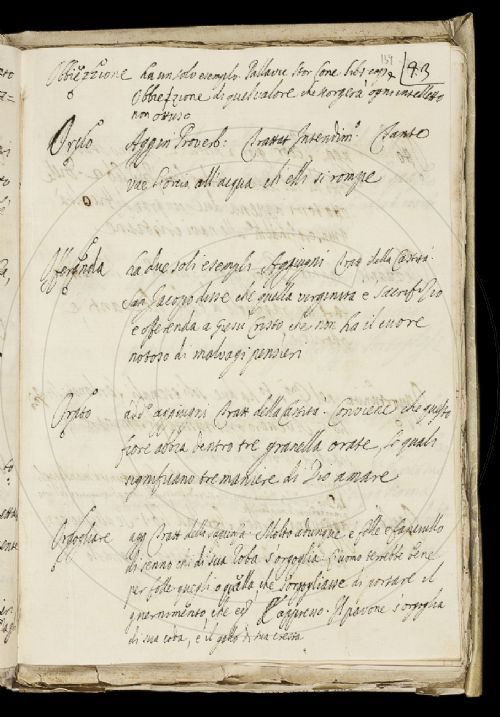 139
43
Obbiezzione ha un solo esempio. Pallavic Stor Conc lib 1 cap 4
Obbiezzione di quel valore che sorgerà ogni intelletto
non ottuso
Orcio Aggiu Proverb: Trattat Intendim.o Tante
vae l'orcio all'acqua ch'elli si rompe
Offerenda ha due soli esempli Aggiugni Trat della Castità.
San Jacopo disse che quella virginità è Sacrif Dio
e offerenda a Giesu Cristo, che non ha il cuore
di malvagi pensieri
Orato aggiugni Tratt della Castità. Conviene che questo
fiore abbia dentro tre granella orate, le quali
significano tre maniere di Dio amare
Orgogliare agg Tratt della Molto adunque è folle e fanciullo
di senno chi di sua roba s'orgoglia. L'uomo terrebbe bene
per folle quegli o quella, che s'orgogliasse di portare il
guernimento, che Et appresso. Il pavone s'orgoglia
di sua coda, e il gallo di sua cresta